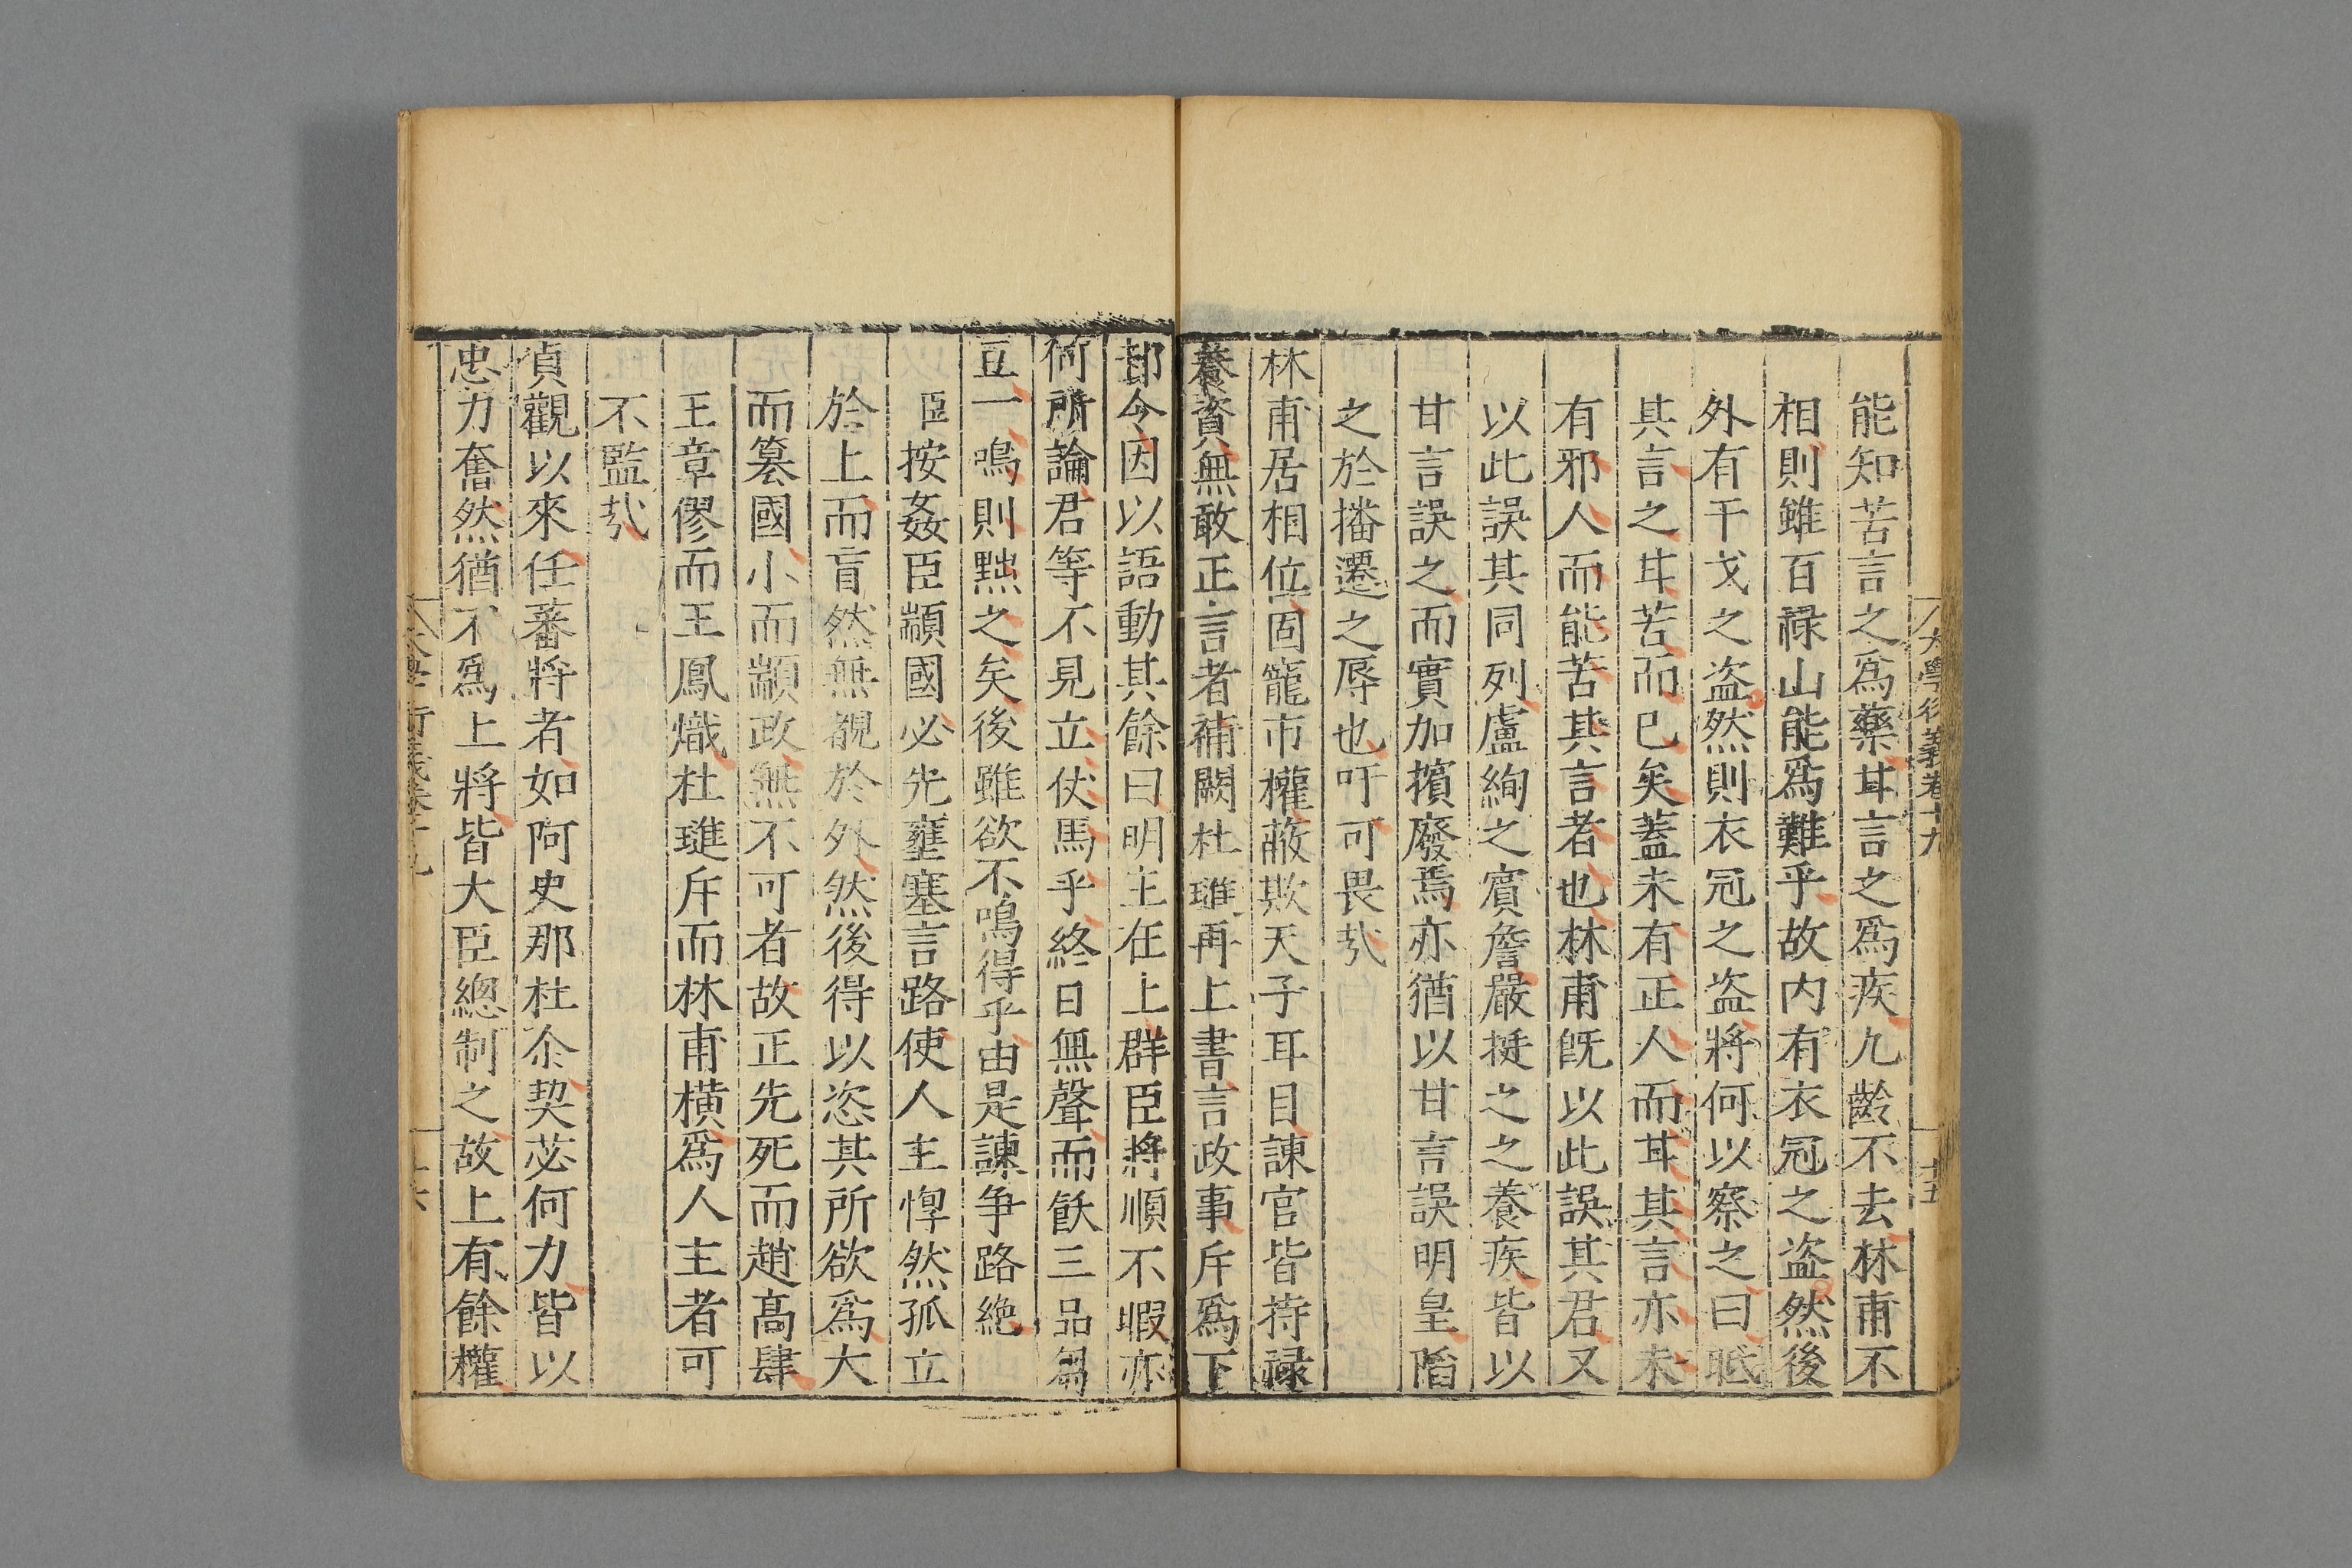 大學衍義卷十九
十五
能知苦言之爲藥甘言之爲疾九齡不去林甫不
相則雖百禄山能爲難乎故内有衣冠之盗然後
外有干戈之盗然則衣冠之盗將何以察之曰眡
其言之甘苦而已矣蓋未有正人而甘其言亦未
有邪人而能苦其言者也林甫既以此誤其君又
以此誤其同列盧絢之賓詹嚴挺之之養疾皆以
甘言誤之而實加擯廢焉亦猶以甘言誤明皇䧟
之於播遷之辱也吁可畏㢤
林甫居相位固寵市權蔽欺天子耳目諫官皆持禄
養資無敢正言者補闕杜璡再上書言政事斥爲下
邽令因以語動其餘曰明主在上群臣將順不暇亦
何所論君等不見立仗馬乎終日無聲而飫三品芻
豆一鳴則黜之矣後雖欲不鳴得乎由是諫争路絶
臣按姦臣顓國必先壅塞言路使人主惸然孤立
於上而盲然無覩於外然後得以恣其所欲爲大
而簒國小而顓政無不可者故正先死而趙髙肆
王章僇而王鳳熾杜璡斥而林甫横爲人主者可
不監㢤
貞觀以來任蕃將者如阿史那杜尒契苾何力皆以
忠力奮然猶不爲上將皆大臣緫制之故上有餘權
大學衍義卷十九
十六